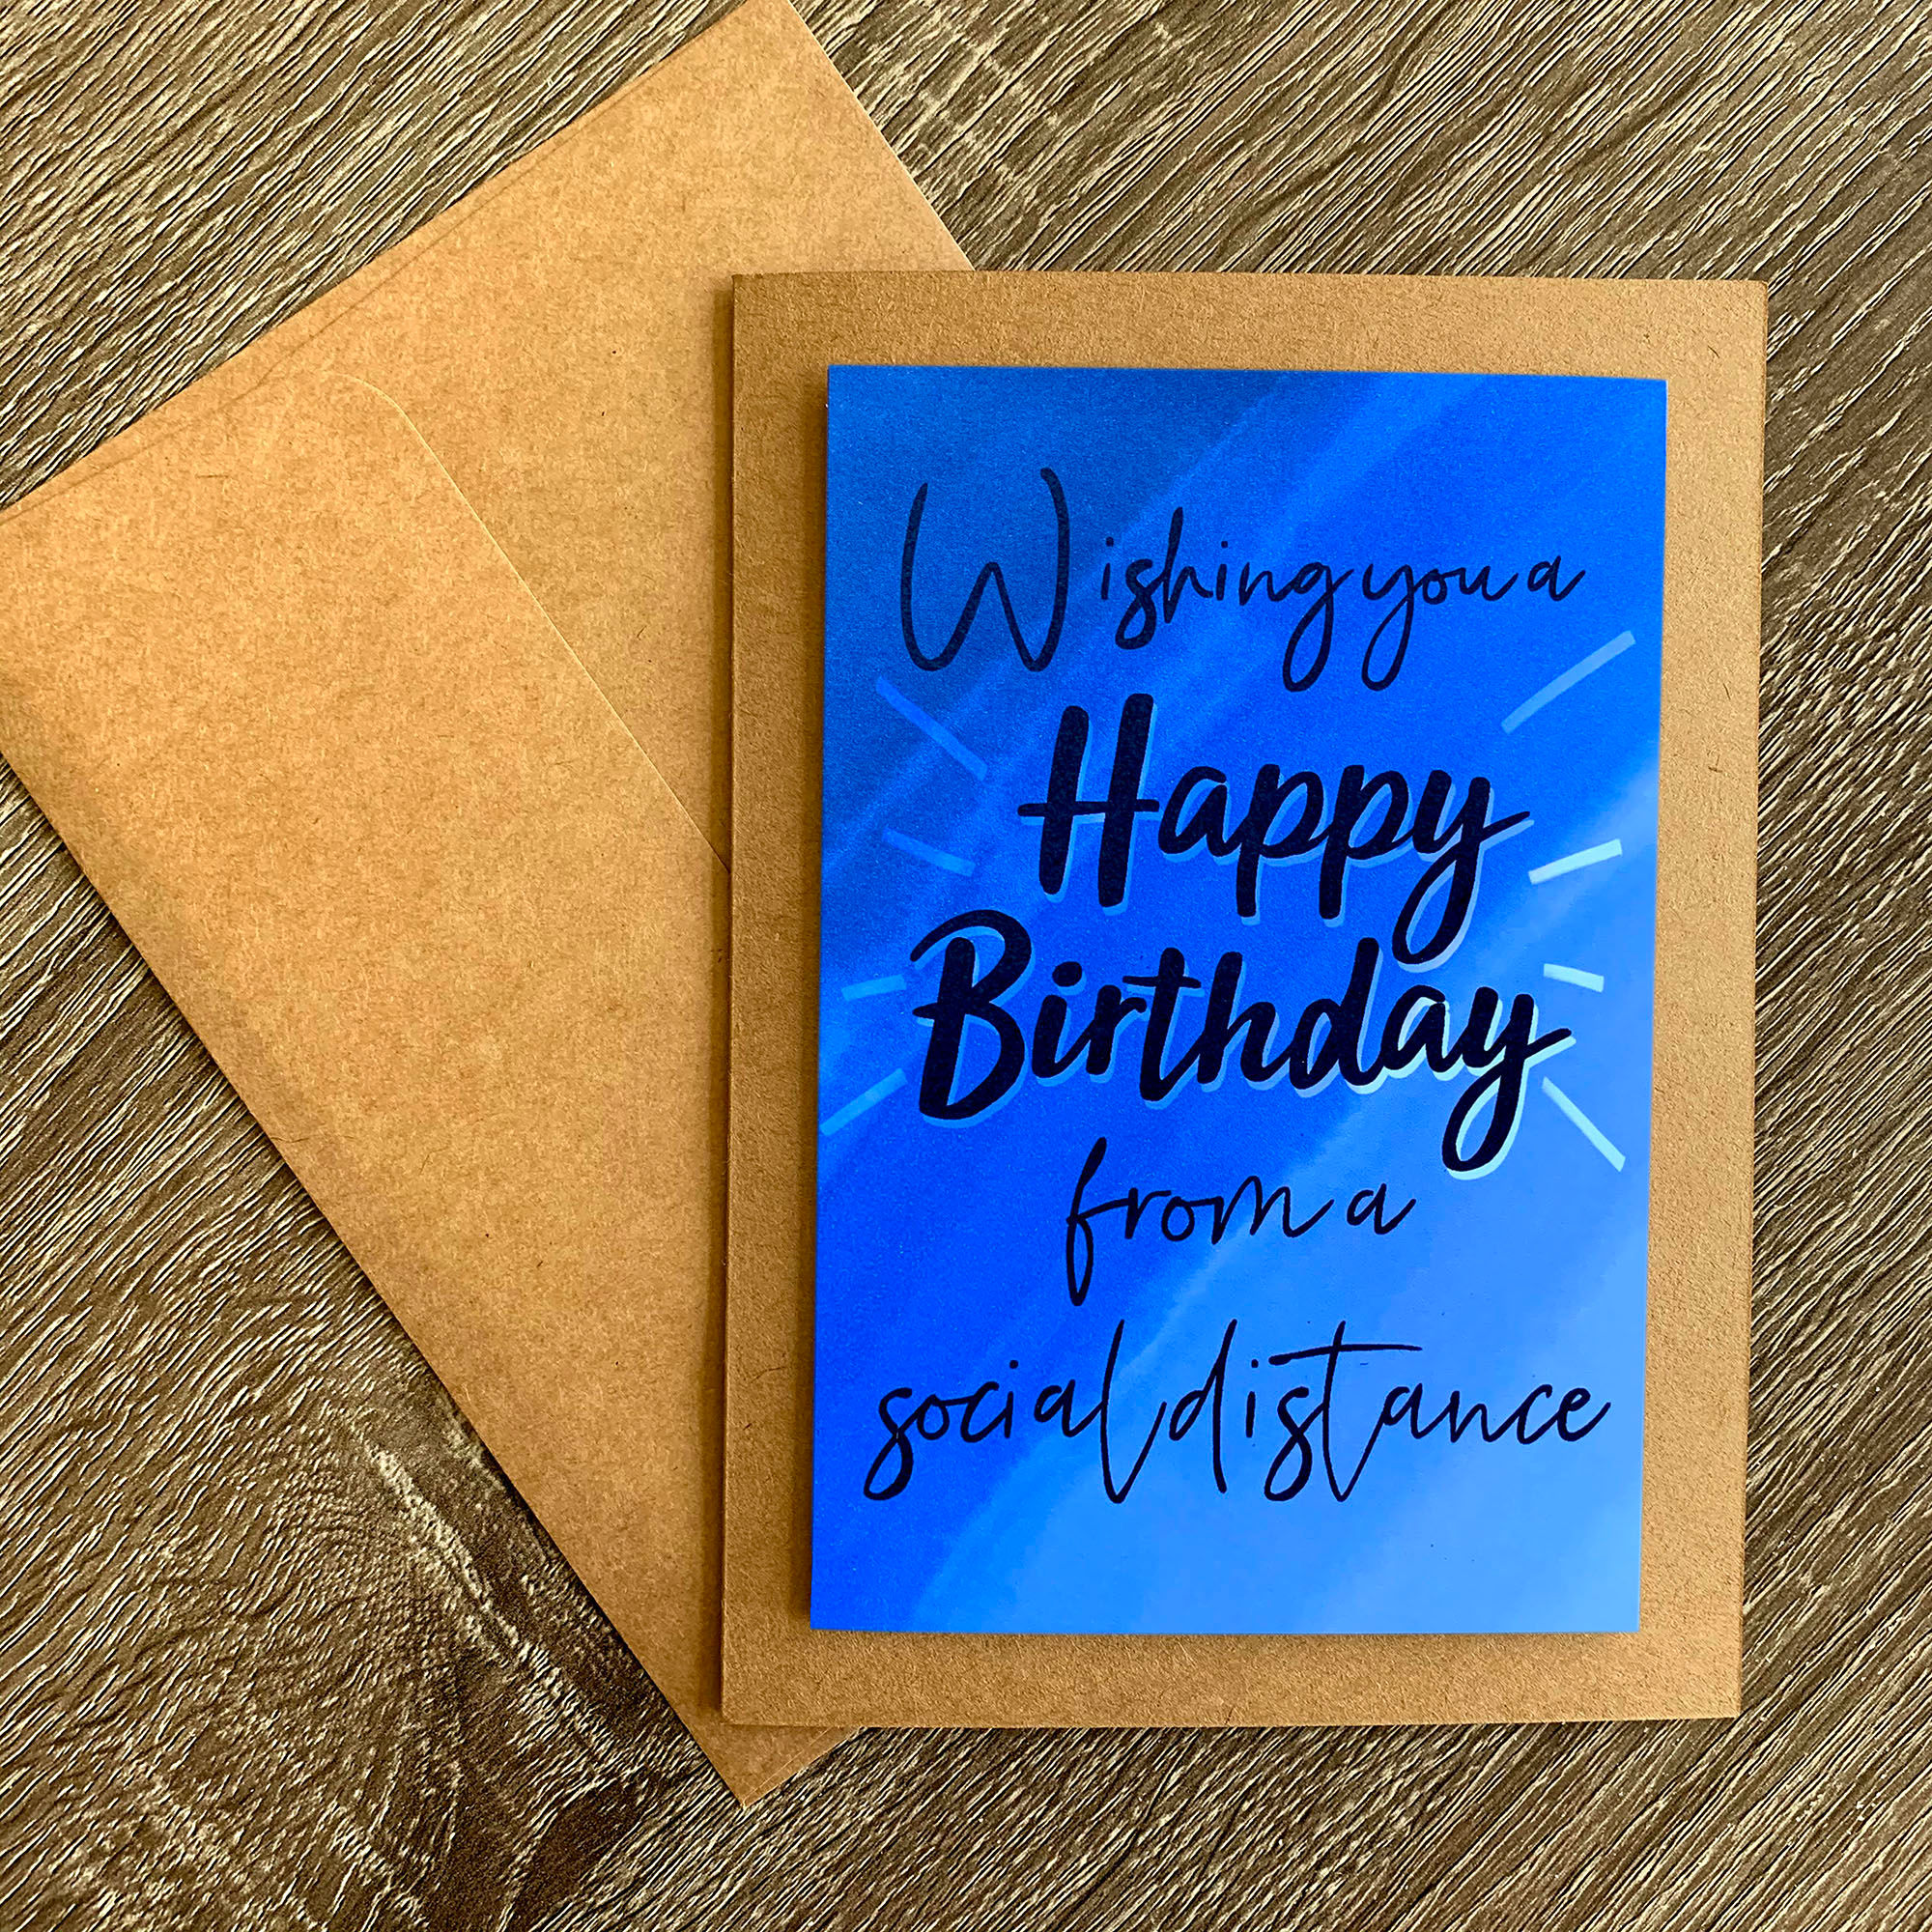 Wishing you a
Happy
Birthday
from a
social distance